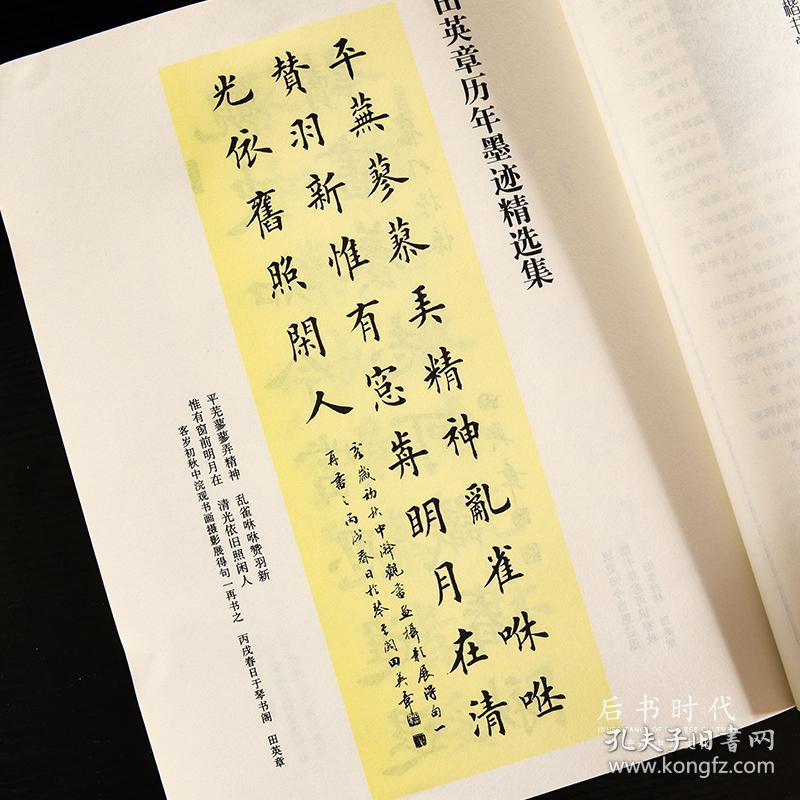 田英章历年墨迹精选集
平蕪蓼蓼弄精神亂雀咻咻
贊羽新惟有窓歬明月在清
光依舊照閑人
客歲初秋中澣觀書畫攝影展得句一
再書之丙戌春日於琴書閣田英章
平芜蓼蓼弄精神 乱雀咻咻赞羽新
惟有窗前明月在 清光依旧照闲人
客岁初秋中浣观书画摄影展得句一再书之 丙戌春日于琴书阁 田英章
后书时代
孔夫子旧书网
www.kongfz.com